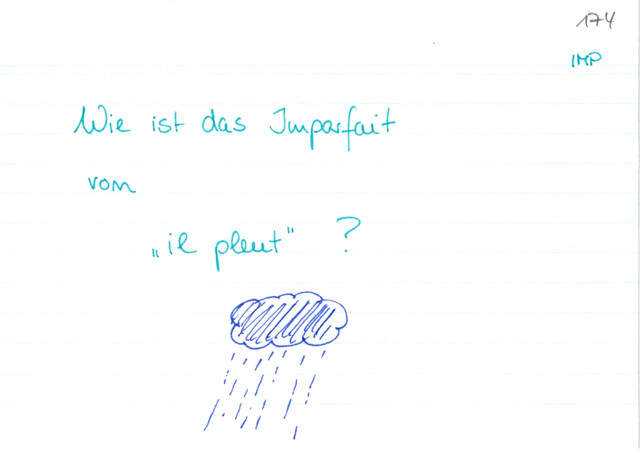 174
IMP
Wie ist das Imparfait
vom
„il pleut" ?